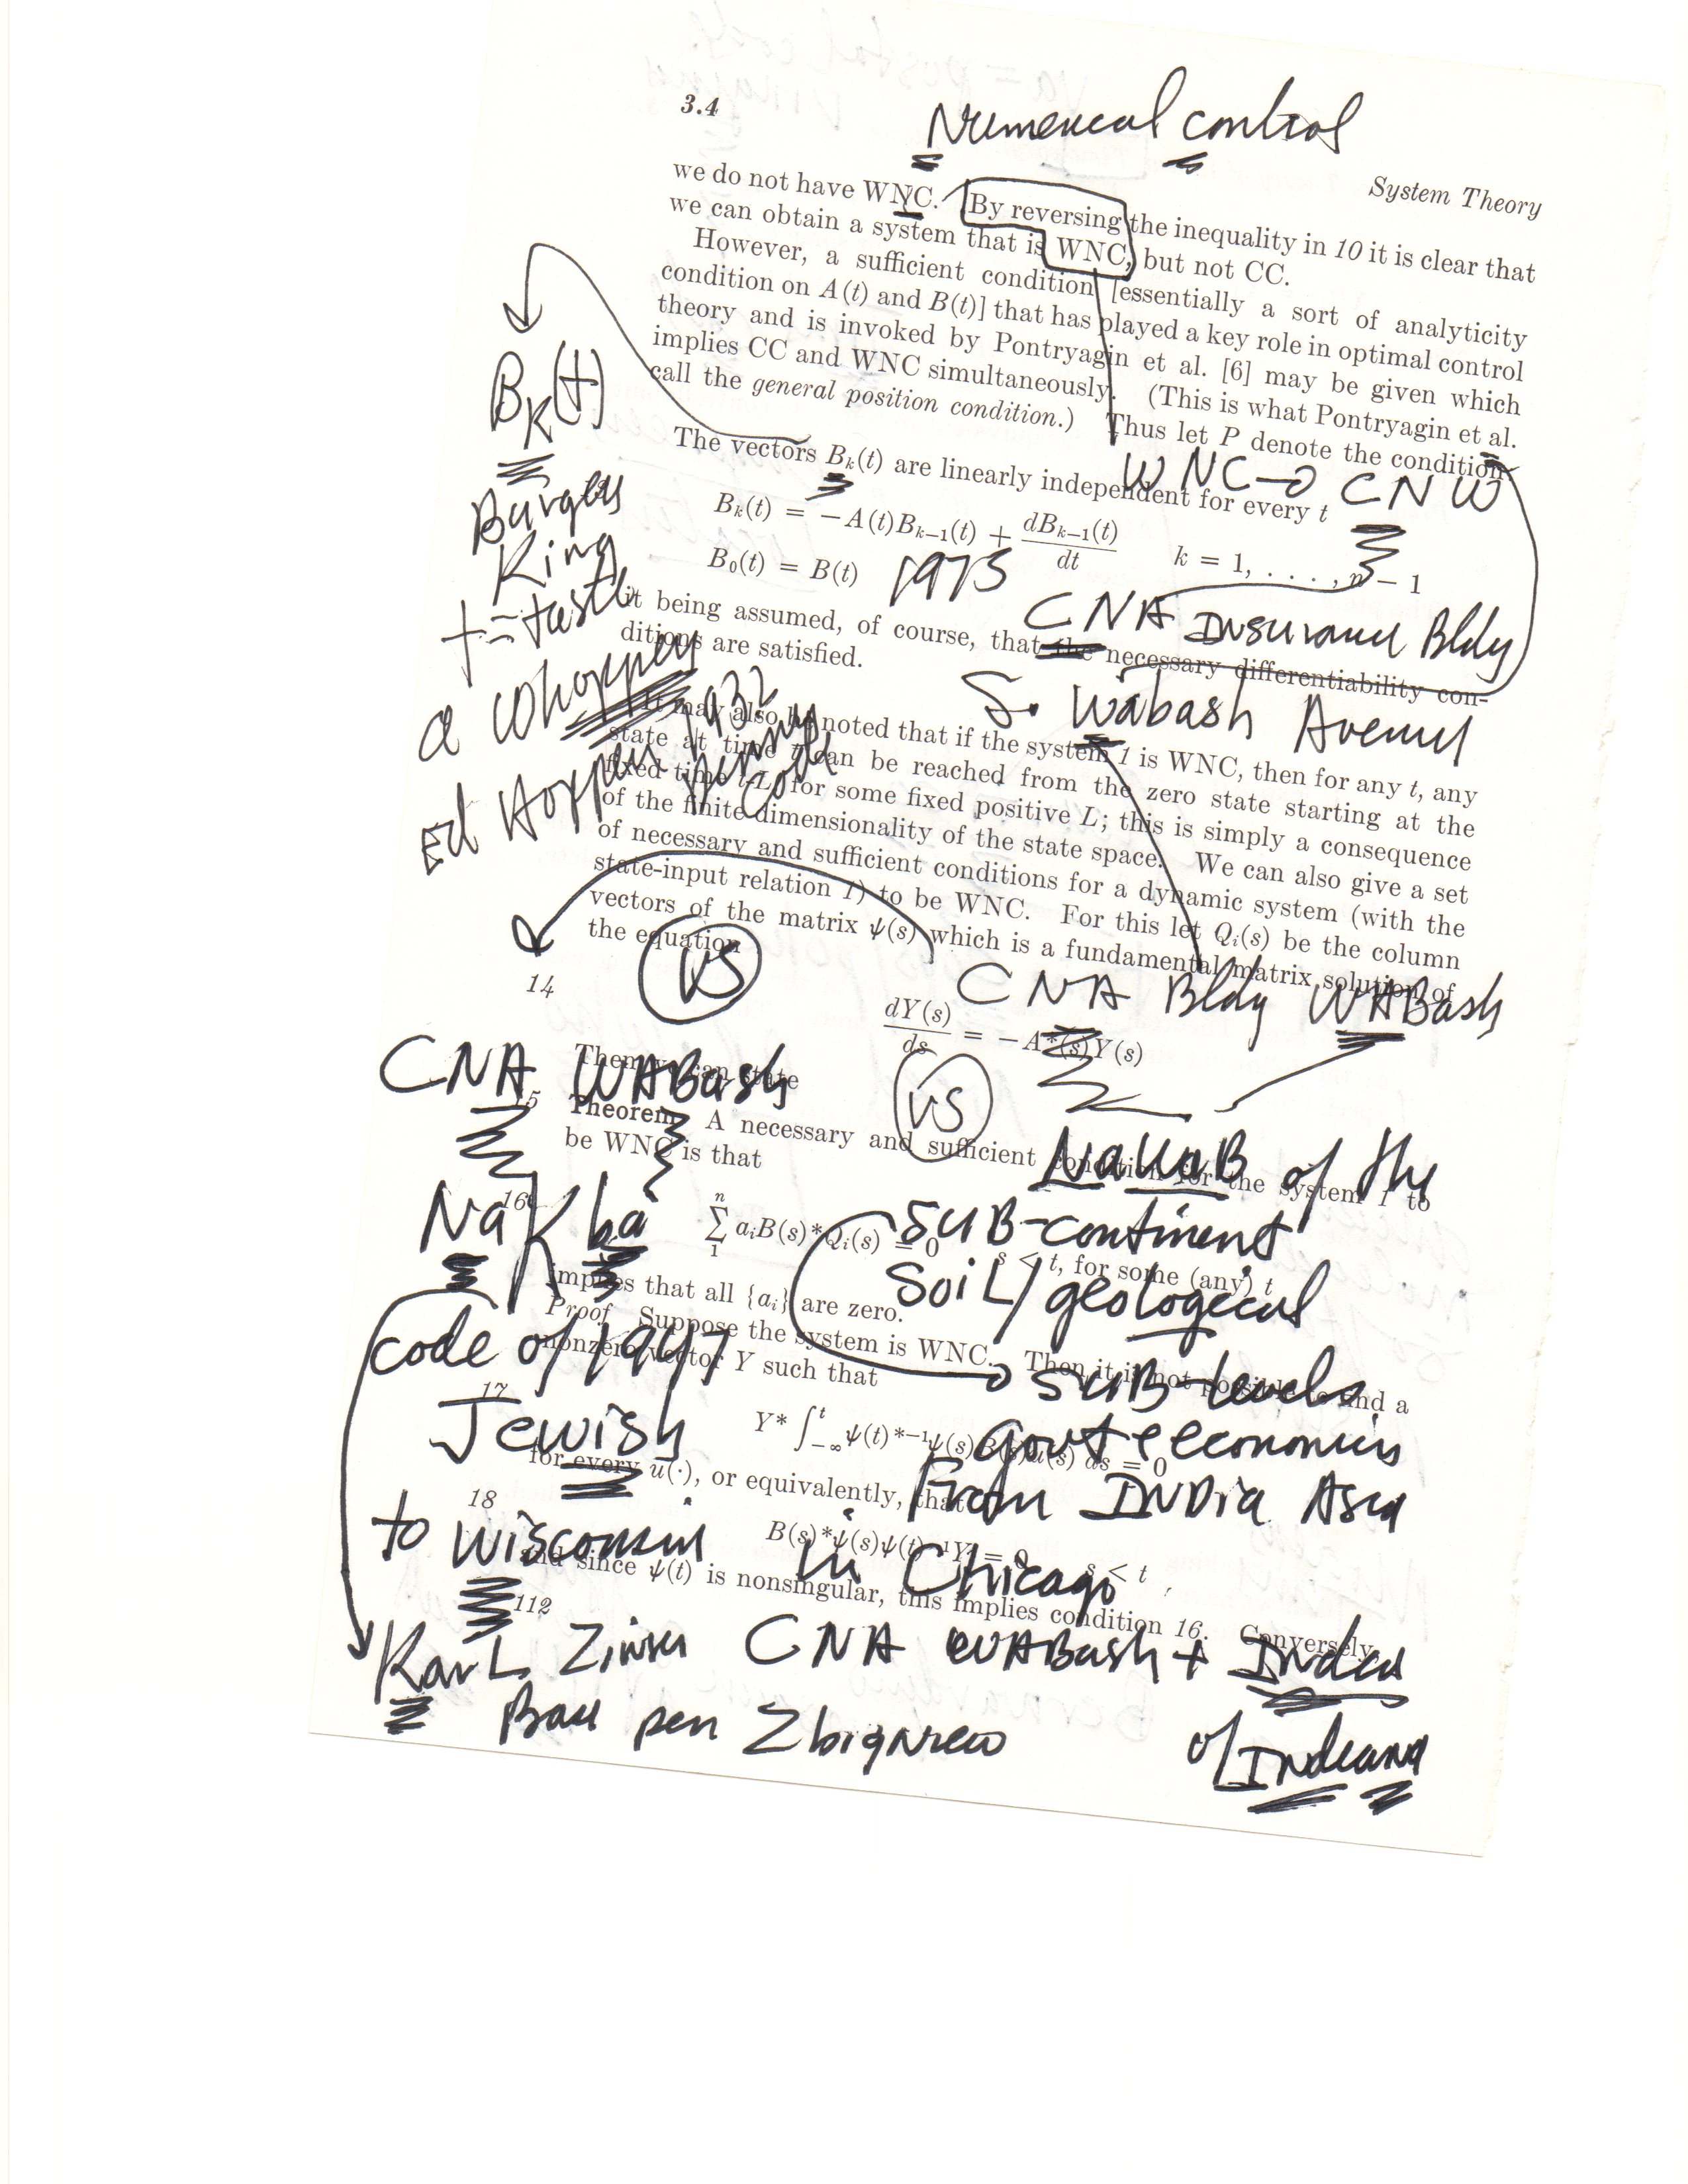 3.4
Numerical control
System Theory
we do not have WNC. By reversing the inequality in 10 it is clear that
we can obtain a system that is WNC, but not CC.
However, a sufficient condition [essentially a sort of analyticity
condition on A(t) and B(t)] that has played a key role in optimal control
theory and is invoked by Pontryagin et al. [6] may be given which
implies CC and WNC simultaneously. (This is what Pontryagin et al.
call the general position condition.) Thus let P denote the condition
BK(t)
The vectors Bk(t) are linearly independent for every t
WNC→CNW
Bk(t) = −A(t)Bk−1(t) + dBk−1(t)/dt k = 1, . . . , n − 1
B0(t) = B(t)
1975
King
CNA Insurance Bldg
it being assumed, of course, that the necessary differentiability con-
ditions are satisfied.
S. Wabash Avenue
a Whopper
1932
Ed Hopper
code
It may also be noted that if the system 1 is WNC, then for any t, any
state at time t can be reached from the zero state starting at the
fixed time t-L, for some fixed positive L; this is simply a consequence
of the finite dimensionality of the state space. We can also give a set
of necessary and sufficient conditions for a dynamic system (with the
state-input relation 1) to be WNC. For this let Qi(s) be the column
vectors of the matrix ψ(s) which is a fundamental matrix solution of
the equation
VS
CNA Bldg WABash
14
dY(s)/ds = −A*(s)Y(s)
CNA WABash
Then we can state
VS
15 Theorem A necessary and sufficient condition for the system 1 to
be WNC is that
NaWaB of the
SUB-continent
NaKba
16 n∑1 aiB(s)*Qi(s) = 0 s < t, for some (any) t
Soil/geological
implies that all {ai} are zero.
Proof Suppose the system is WNC. Then it is not possible to find a
nonzero vector Y such that
code of 1947
SUB-levels
Jewish
17 Y* ∫t−∞ ψ(t)*−1ψ(s)B(s)u(s) ds = 0
govt economics
for every u(·), or equivalently, that
From INDia Asia
to Wisconsin
18 B(s)*ψ(s)ψ(t)−1Y = 0 s < t
in Chicago
and since ψ(t) is nonsingular, this implies condition 16. Conversely,
112
KarL CNA WABash +
Ball pen Zbignrew
of Indiana